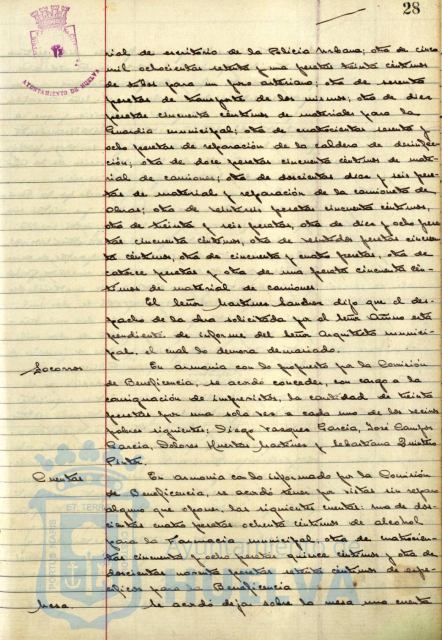 28
AYUNTAMIENTO DE HUELVA
rial de escritorio de la Policia Urbana; otra de cinco
mil ochocientas setenta y una pesetas treinta céntimos
de tubos para un pozo artesiano; otra de sesenta
pesetas de transporte de los mismos; otra de diez
pesetas cincuenta céntimos de materiales para la
Guardia municipal; otra de cuatrocientas sesenta y
ocho pesetas de reparación de la caldera de desinfec-
ción; otra de doce pesetas cincuenta céntimos de mate-
rial de camiones; otra de doscientas diez y seis pese-
tas de material y reparación de la camioneta de
Obras; otra de veintiuna pesetas cincuenta céntimos,
otra de treinta y seis pesetas, otra de diez y ocho pese-
tas cincuenta céntimos, otra de veintidos pesetas cincuen-
ta céntimos, otra de cincuenta y cuatro pesetas, otra de
catorce pesetas y otra de una peseta cincuenta cén-
timos de material de camiones.
El Señor Martinez Sanchez dijo que el des-
pacho de la solicitada por el Señor está
pendiente de informe del Señor Arquitecto munici-
pal, el cual lo demora demasiado.
Socorros
En armonia con lo propuesto por la Comisión
de Beneficencia, se acordó conceder, con cargo a la
consignación de imprevistos, la cantidad de treinta
pesetas por una sola vez a cada uno de los vecinos
pobres siguientes; Diego Vazquez Garcia, José Campos
Garcia, Dolores Huertas Martinez y Sebastiana Quintero
Cuentas
En armonia con lo informado por la Comisión
de Beneficencia, se acordó tener por vistas sin reparo
alguno que oponer, las siguientes cuentas: una de dos-
cientas cuatro pesetas ochenta céntimos de alcohol
para la Farmacia municipal, otra de cuatrocien-
tas cincuenta y ocho pesetas quince céntimos y otra de
doscientas noventa pesetas setenta céntimos de espe-
cificos para la Beneficencia
Mesa.
Se acordó dejar sobre la mesa una cuenta
HUELVA